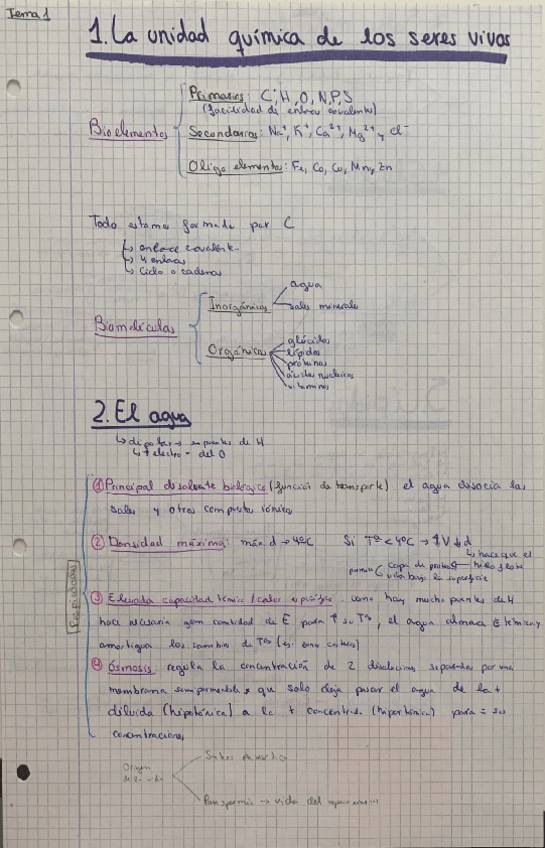 Tema 1
1. La unidad química de los seres vivos
Primarios: C, H, O, N, P, S
(facilidad de enlace covalente)
Bioelementos
Secondarios: Na+, K+, Ca2+, Mg2+ y Cl-
Oligo elementa: Fe, Co, Cu, Mn, Zn
Todo estamos formado por C
↳ enlace covalente
↳ 4 enlaces
↳ Ciclo o cadenas
agua
Inorgánicas
sales minerales
Biomoléculas
glúcidos
Orgánica
lípidos
proteínas
ácidos nucleicos
vitaminas
2. El agua
↳ dipolar → puentes de H
↳ + electro - del O
① Principal disolvente biológico (función de transporte) el agua disocia las
sales y otros compuestos iónicos
② Densidad máxima: máx d → 4ºC Si Tª < 4ºC → ↑V ↓d
↳ hace que el
capa de hielo flote
vida bajo la superficie
Propiedades
③ Elevada capacidad térmica / calor específico como hay mucho puentes de H
hace necesaria gran cantidad de E para ↑ su Tª, el agua almacena E térmica y
amortigua los cambios de Tª
④ Osmosis regula la concentración de 2 disoluciones separadas por una
membrana semipermeable y que solo deja pasar el agua de la +
diluida (hipotónica) a la + concentrada (hipertónica) para = sus
concentraciones
Origen
Panspermia → vida del